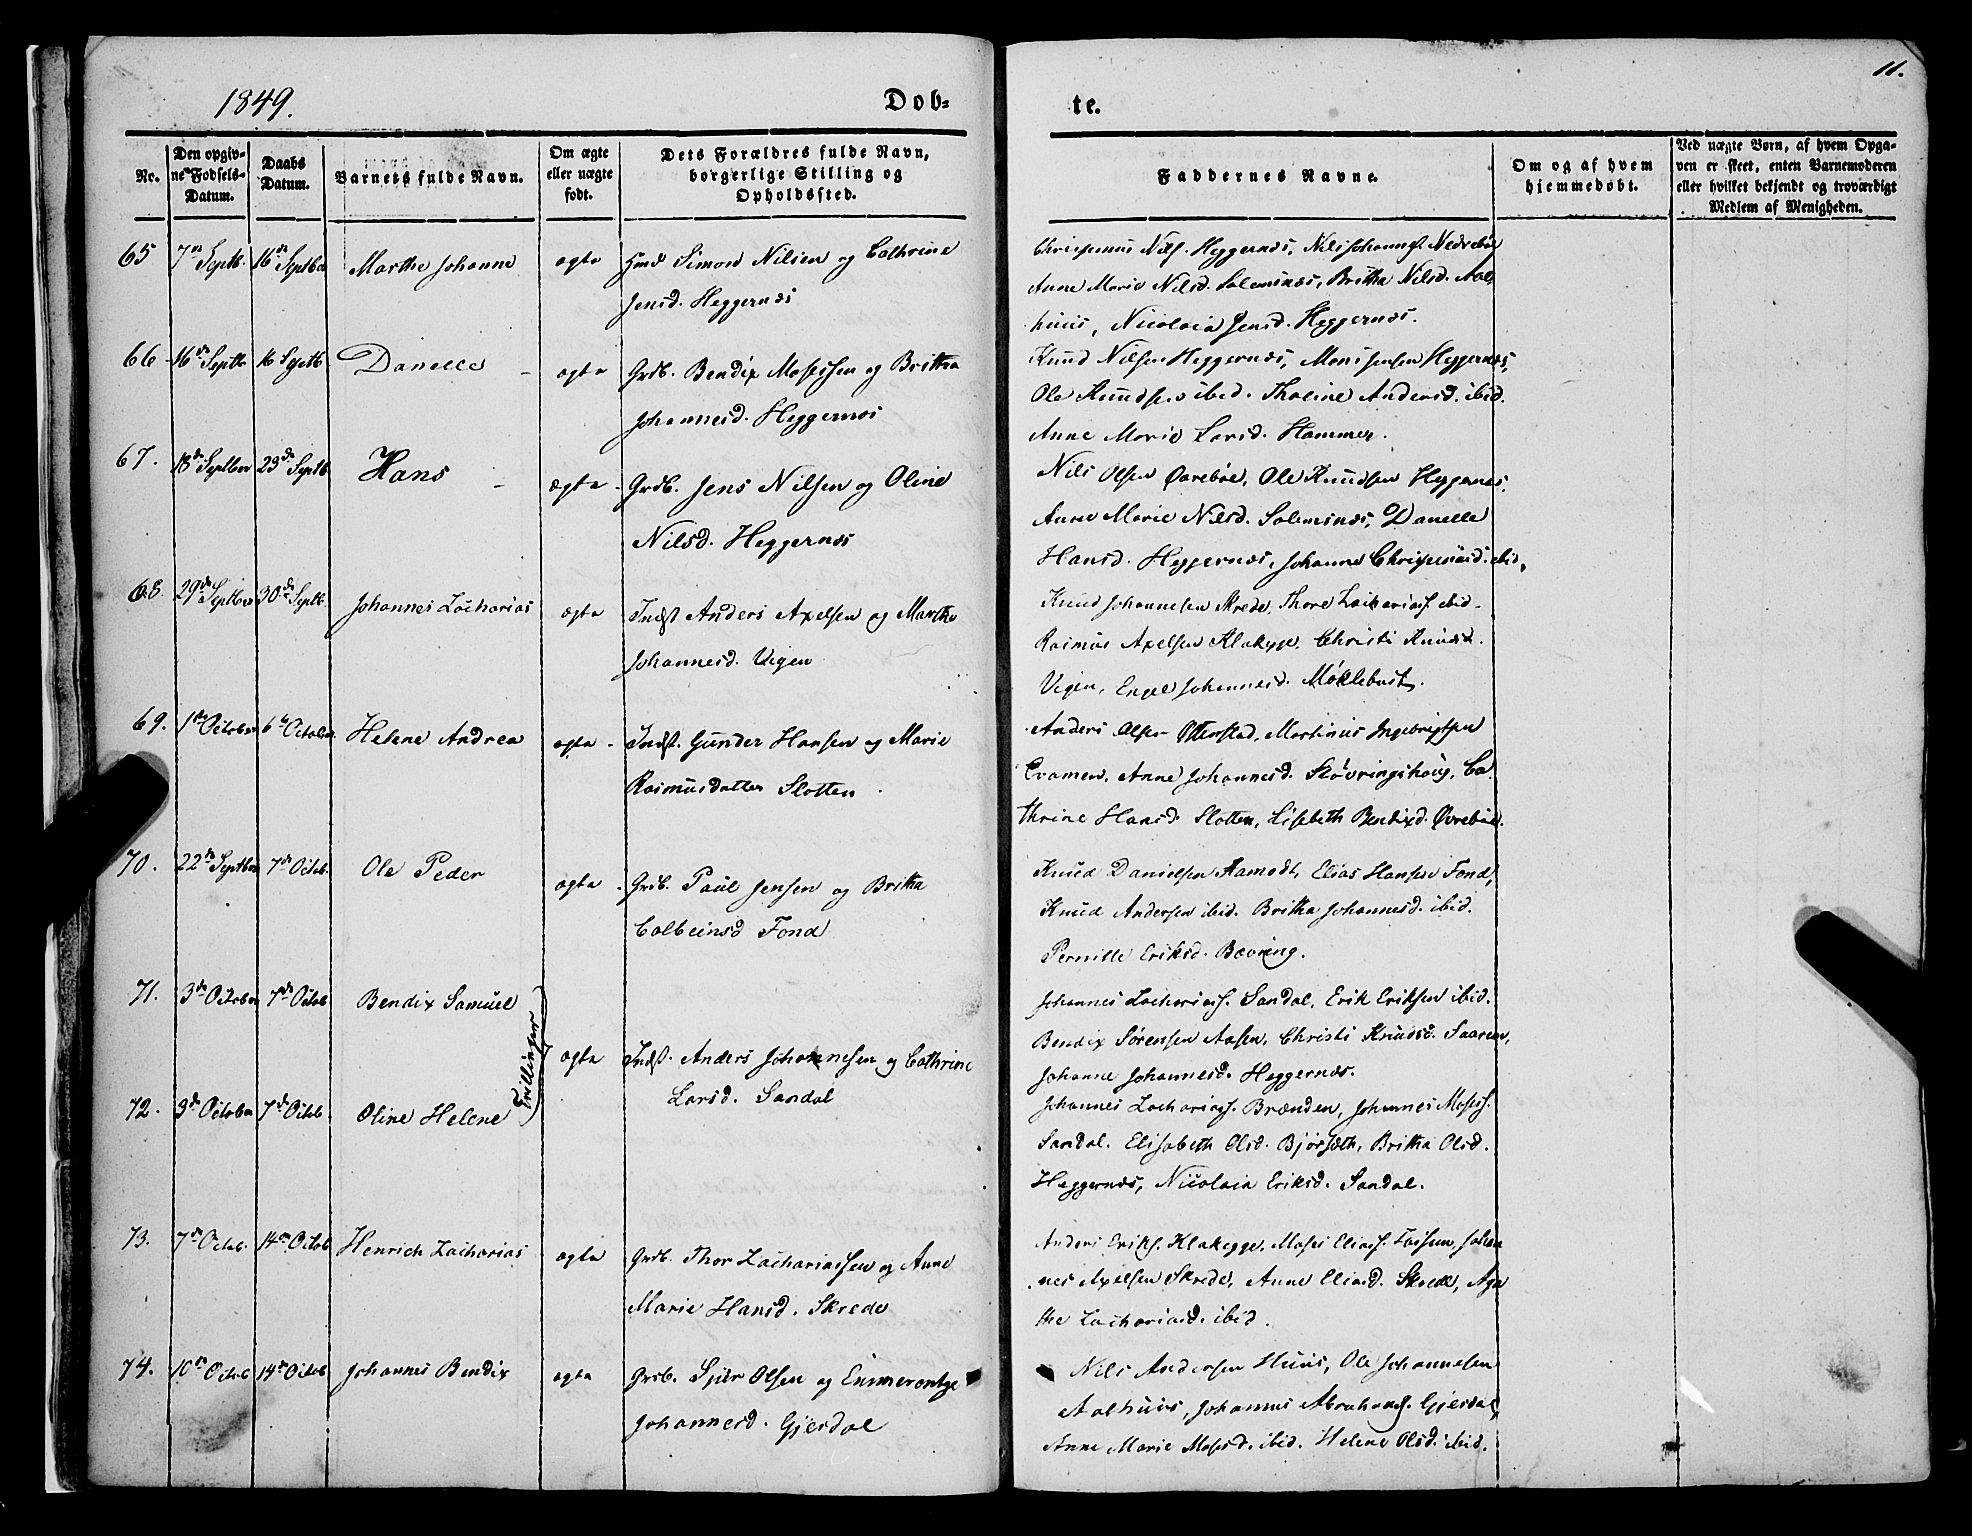 1849.
Dob=
te.
11.
No.
Den opgiv-
ne Fødsels-
Datum.
Daabs
Datum.
Barnets fulde Navn.
Om ægte
eller uægte
født.
Dets Forældres fulde Navn,
borgerlige Stilling og
Opholdssted.
Faddernes Navne.
Om og af hvem
hjemmedøbt.
Ved uægte Børn, af hvem Opga-
ven er skeet, enten Barnemoderen
eller hvilket bekjendt og troværdigt
Medlem af Menigheden.
65 7de Septb. 16de Septber Marthe Johanne ægte Hmd Simon Nilsen og Cathrine
Jensd. Heggernæs
Chrispinus Nils. Heggernæs, Nils Johanns. Nedrebøe
Anne Marie Nilsd. Solemsnæs, Britha Nilsd. Aal
huus, Nicolaia Jensd. Heggernæs.
66 16de Septb. 16 Septb. Danelle ægte Grdb. Bendix Mosessen og Britha
Johannesd. Heggernæs
Knud Nilsen Heggernæs, Mons Jensen Heggernæs,
Ole Knudsen ibid. Thaline Andersd. ibid.
Anne Marie Larsd. Hammer.
67. 18de Septber 23de Septb. Hans ægte Grdb. Jens Nilsen og Oline
Nilsd. Heggernæs
Nils Olsen Øvrebøe, Ole Knudsen Heggernæs,
Anne Marie Nilsd. Solemsnæs, Danelle
Hansd. Heggernæs, Johanne Chrispinusd. ibid.
68. 29de Septber 30de Septb. Johannes Zacharias ægte Indst Anders Axelsen og Marthe
Johannesd. Vigen
Knud Johannesen Skrede, Thore Zachariass. ibid.
Rasmus Axelsen Klakegge, Christi Knudsd.
Vigen, Engel Johannesd. Møklebust.
69. 1ste October 6te October Helene Andrea ægte Indst. Gunder Hansen og Marie
Rasmusdatter Slotten
Anders Olsen Otterstad, Martinus Ingebrigtsen
Cramen, Anne Johannesd. Støvringshoug, Ca
thrine Hansd. Slotten, Lisebeth Bendixd. Øvrebøe.
70. 22de Septber 7de Octob. Ole Peder ægte Grdb. Paul Jensen og Britha
Colbeinsd Fond
Knud Danielsen Aamodt, Elias Hansen Fond,
Knud Andersen ibid. Britha Johannesd. ibid.
Pernille Eriksd. Bævring.
71. 3de October 7de Octob Bendix Samuel
Trillinger
ægte Indst. Anders Johannesen og Cathrine
Larsd. Sandal
Johannes Zachariass. Sandal, Erik Eriksen ibid.
Bendix Sørensen Aasen, Christi Knudsd. Saaren,
Johanne Johannesd. Heggernæs.
72. 3de October 7de Octob. Oline Helene
Johannes Zachariass. Brænden, Johannes Moses.
Sandal. Elisabeth Olsd. Bjørsæth, Britha Olsd.
Heggernæs, Nicolaia Eriksd. Sandal.
73. 7de Octob. 14de Octob Henrich Zacharias ægte Grdb. Thor Zachariassen og Anne
Marie Hansd. Skrede
Anders Eriks. Klakegge, Moses Eliass. Fossen, Johan
nes Axelsen Skrede, Anne Eliasd. Skrede, Aga
the Zachariasd. ibid.
74. 10de Octob 14de Octob Johannes Bendix ægte Grdb. Sjur Olsen og Emmerentze
Johannesd. Gjesdal
Nils Andersen Huus, Ole Johannesen
Aalhuus, Johannes Abrahams. Gjesdal,
Anne Marie Mosesd. ibid. Helene Olsd. ibid.